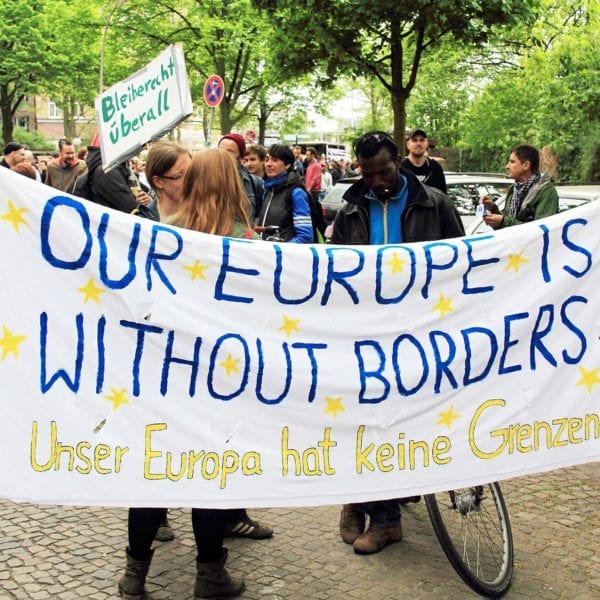 Bleiberecht
überall
OUR EUROPE IS
WITHOUT BORDERS.
Unser Europa hat keine Grenzen